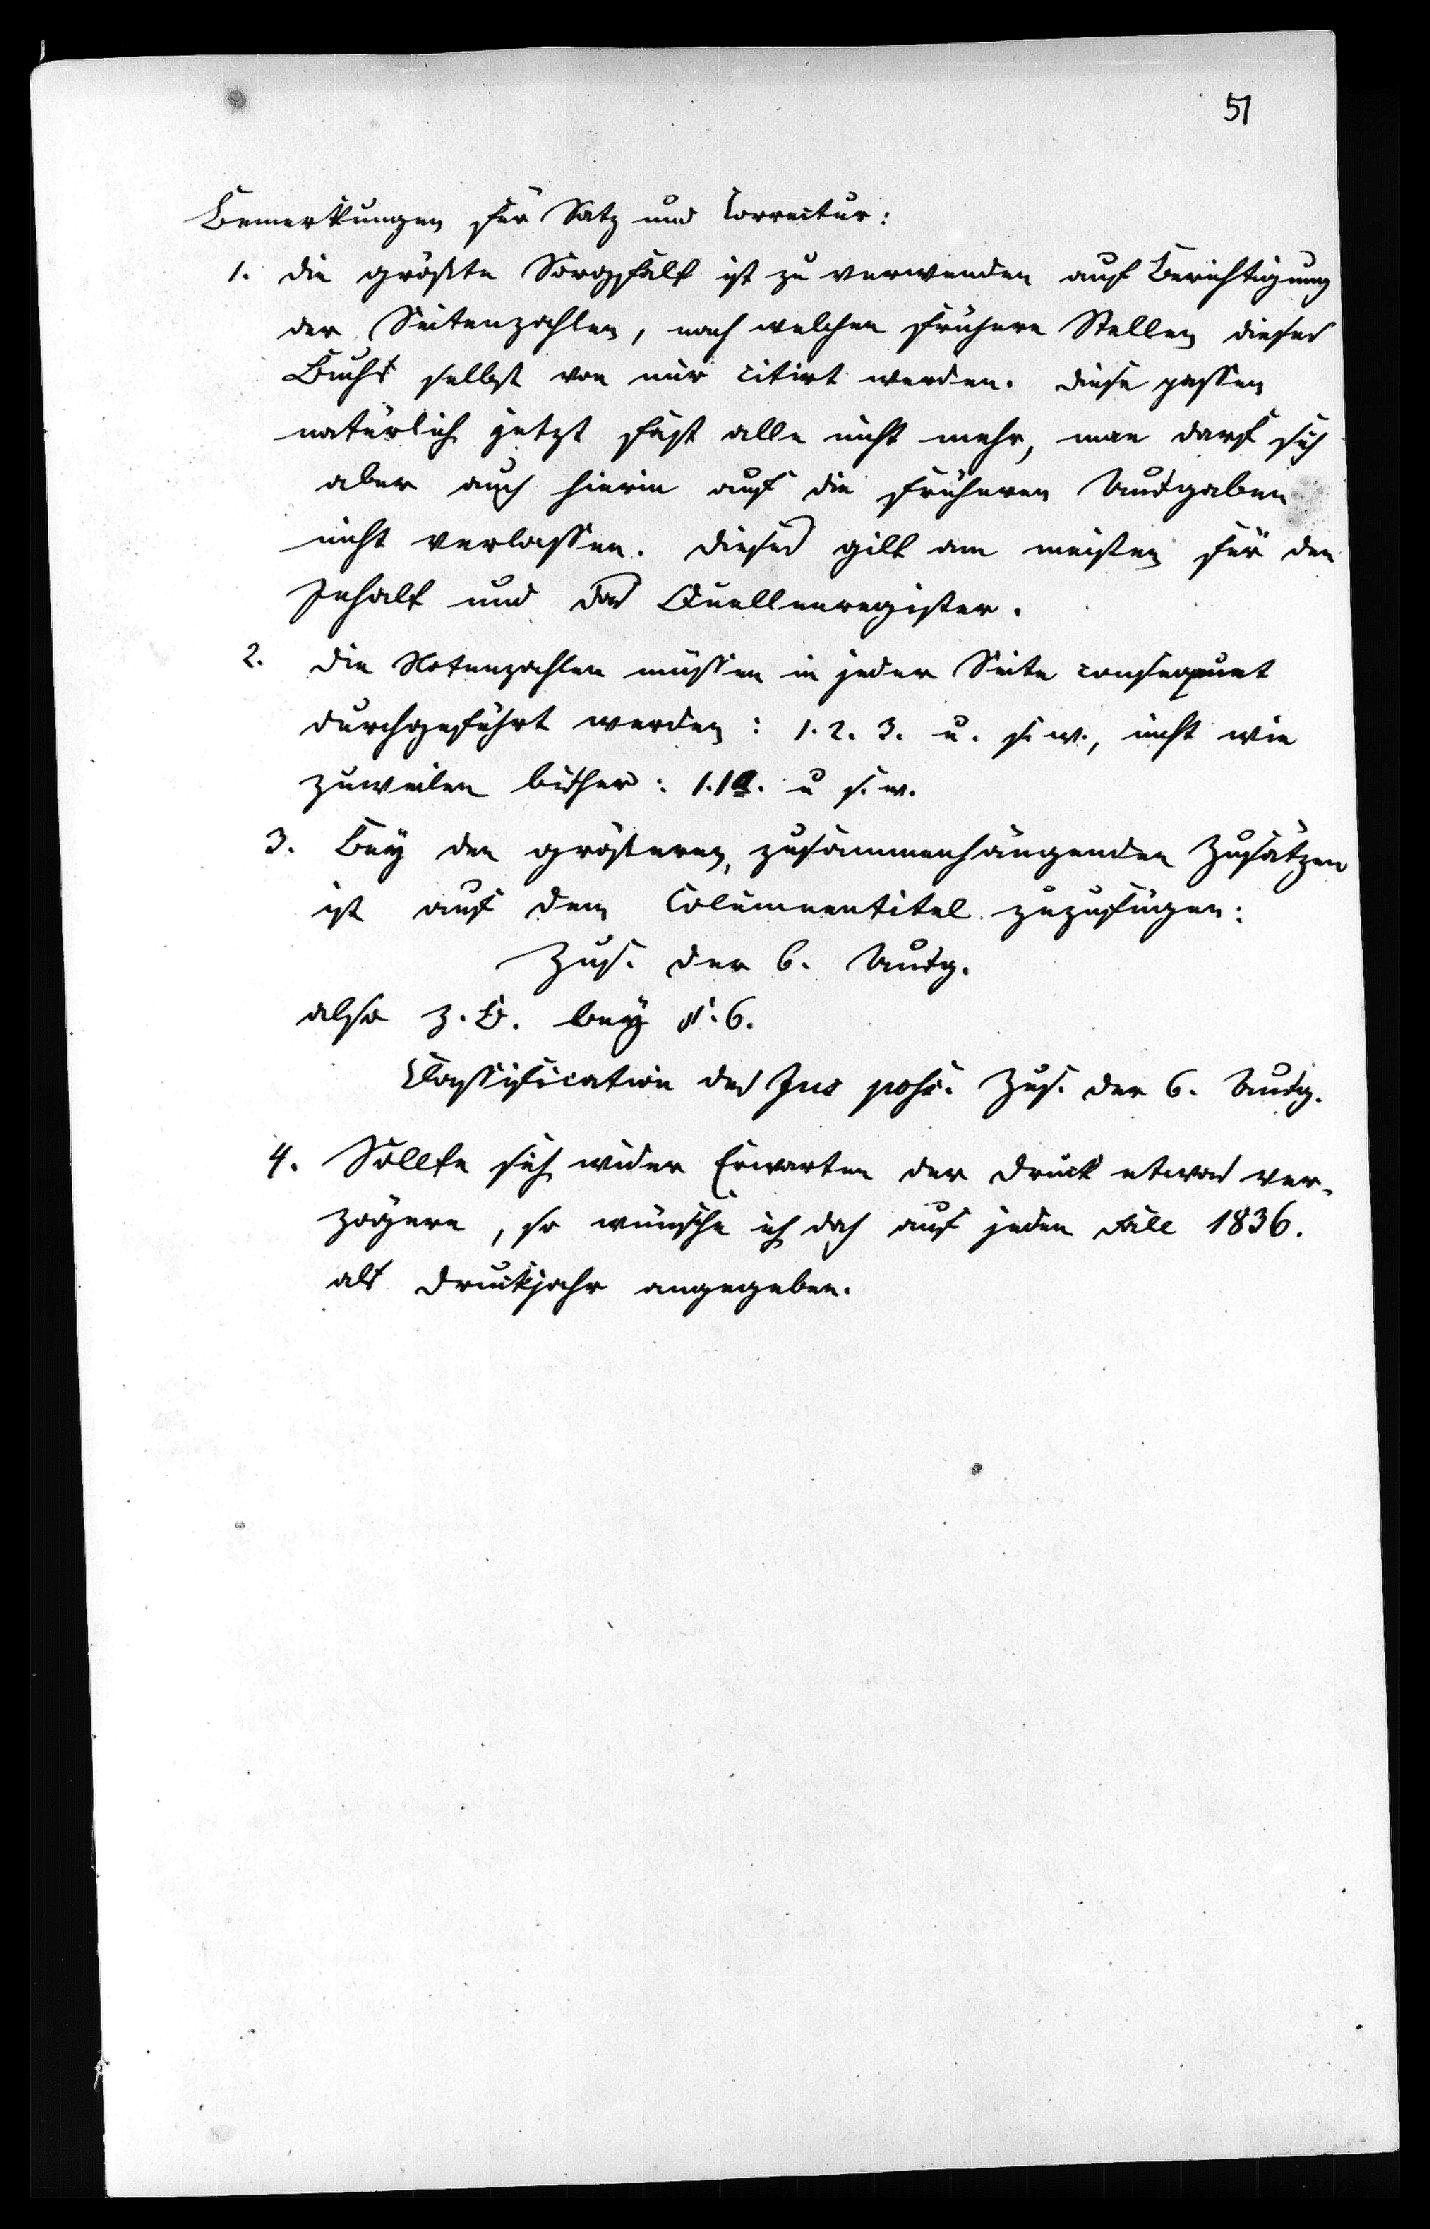 51
Bemerkungen für Satz und Correctur:
1. die größte Sorgfalt ist zu verwenden auf Berichtigung
der Seitenzahlen, nach welchen frühere Stellen dieses
Buchs selbst von mir citirt werden. diese passen
natürlich jetzt fast alle nicht mehr, man darf sich
aber auch hierin auf die früheren Ausgaben
nicht verlassen. dieses gilt am meisten für den
Inhalt und das Quellenregister.
2. die Notenzahlen müssen in jeder Seite consequent
durchgeführt werden: 1. 2. 3. u. s. w., nicht wie
zuweilen bisher: 1. 1a. u s. w.
3. Bey den größeren, zusammenhängenden Zusätzen
ist auf dem Columnentitel zuzufügen:
Zus. der 6. Ausg.
also z. B. bey §. 6.
Classification des Jus poss. Zus. der 6. Ausg.
4. Sollte sich wider Erwarten der Druck etwas ver-
zögern, so wünsche ich doch auf jeden Fall 1836.
als Druckjahr angegeben.